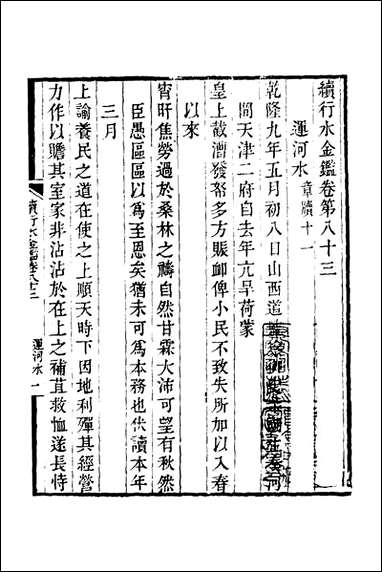 續行水金鑑卷第八十三
運河水 章牘十一
乾隆九年五月初八日山西道
奏河
間天津二府自去年亢旱荷蒙
皇上截漕發帑多方賑衈俾小民不致失所加以入春
以來
宵旰焦勞過於桑林之禱自然甘霖大沛可望有秋然
臣愚區區以為至恩矣猶未可為本務也伏讀本年
三月
上諭養民之道在使之上順天時下因地利殫其經營
力作以贍其室家非沾沾於在上之補苴救恤遂長恃
續行水金鑑卷八十三
運河水 一